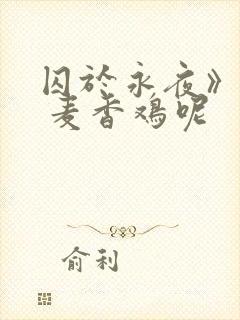 囚於永夜》
麦香鸡呢
俞利